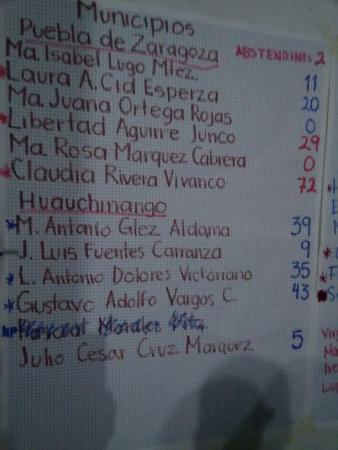 Municipios
Puebla de Zaragoza ABSTENCIONES 2
Ma. Isabel Lugo Mtez. 11
*Laura A. Cid Esperza 20
Ma. Juana Ortega Rojas 0
*Libertad Aguirre Junco 29
Ma. Rosa Marquez Cabrera 0
*Claudia Rivera Vivanco 72
Huauchinango
*M. Antonio Glez Aldama 39
J. Luis Fuentes Carranza 9
*L. Antonio Dolores Victoriano 35
*Gustavo Adolfo Vargas C. 43
NP
Julio Cesar Cruz Marquez 5